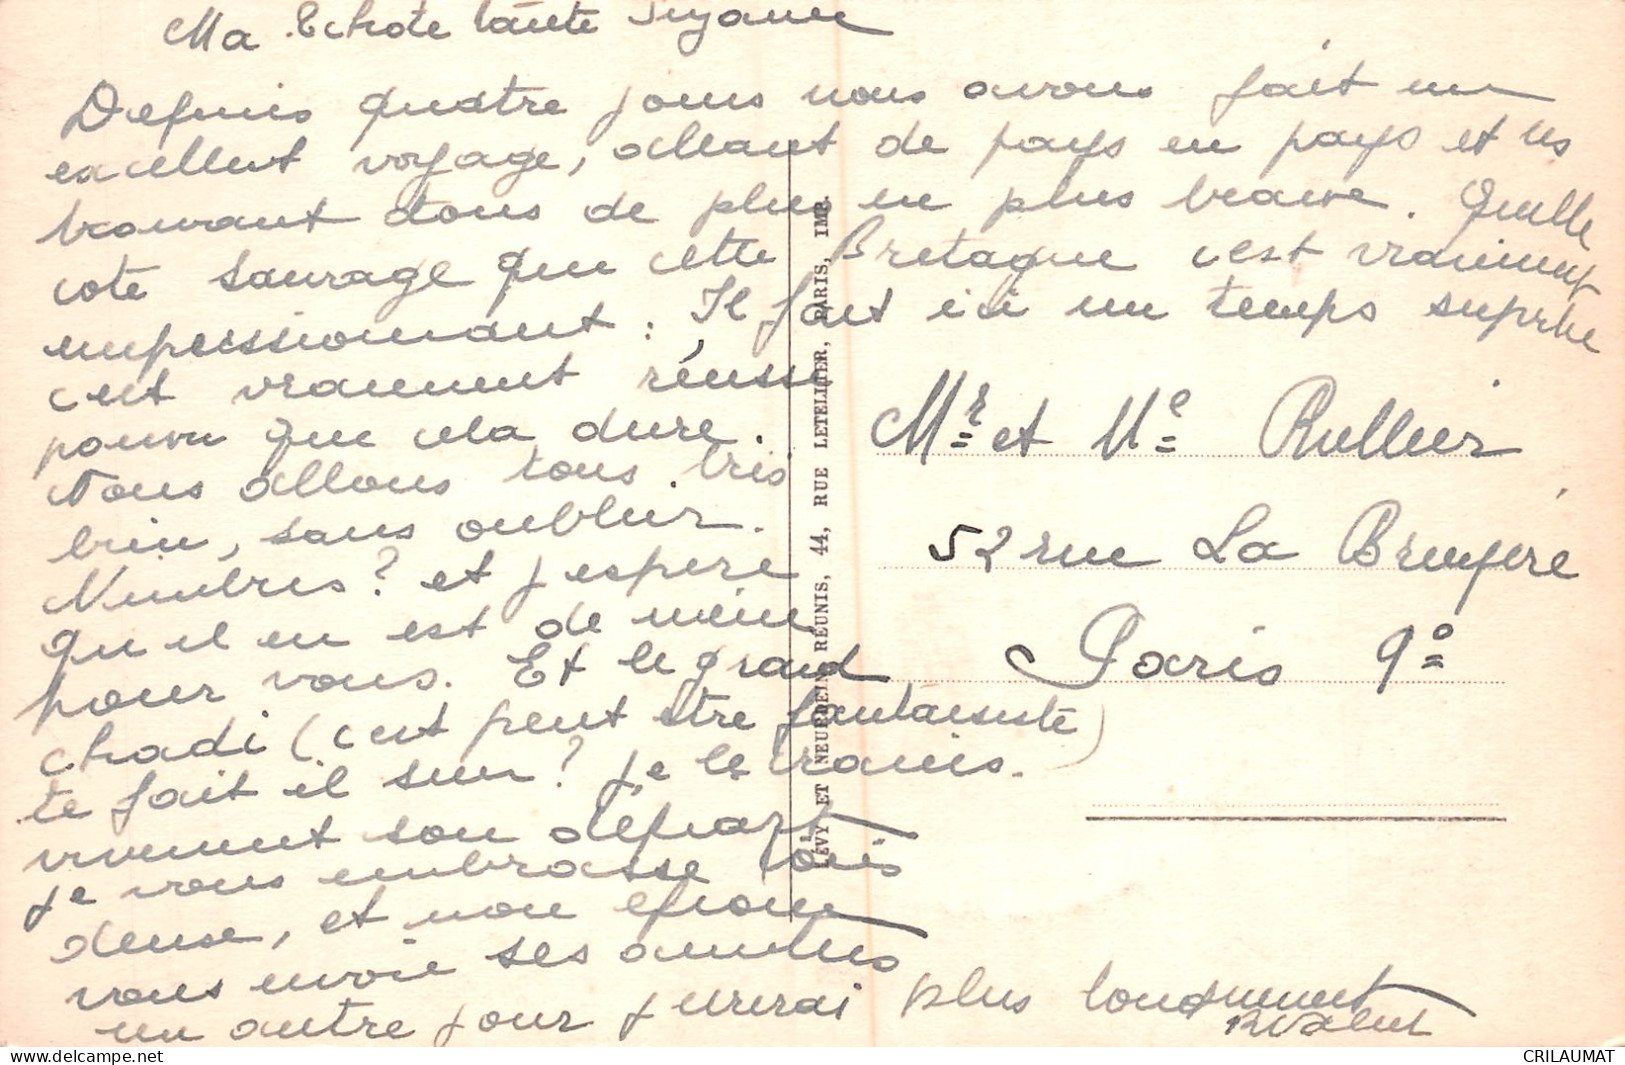 Ma tante
Depuis quatre jours nous avons fait un
excellent voyage, allant de pays en pays et les
trouvant tous de plus en plus beaux. Quelle
cote sauvage que cette Bretagne c'est vraiment
impressionnant. Il fait ici un temps superbe
c'est vraiment réussi
pourvu que cela dure.
Nous allons tous très
bien, sans oublier
? et j'espère
qu'il en est de même
pour vous. Et le grand
chadi (c'est peut être fantaisiste)
te fait il suer? je le crains.
vivement son départ
je vous embrasse tous
deux, et mon époux
vous envoie ses amitiés
un autre jour j'ecrirai plus longuement
Mr et Me Rullier
52 rue La Bruyère
Paris 9e
LÉVY ET NEURDEIN RÉUNIS, 44, RUE LETELLIER, PARIS, IMP.
CRILAUMAT